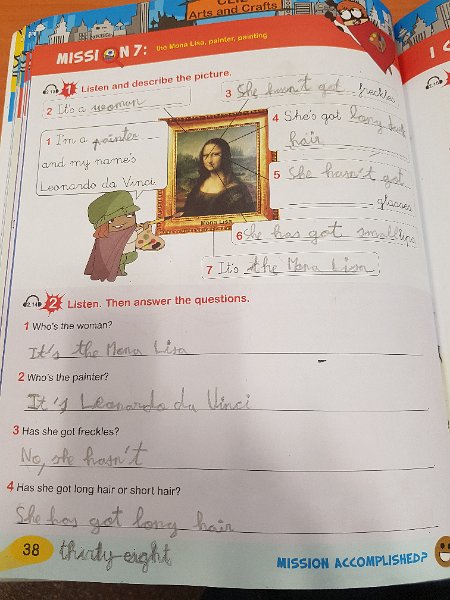 Arts and Crafts
MISSION 7: the Mona Lisa, painter, painting
2.13 1 Listen and describe the picture.
2 It's a woman
3 She hasn't got freckles
1 I'm a painter
and my name's
Leonardo da Vinci
4 She's got long dark
hair
5 She hasn't got
glasses
Mona Lisa
6 She has got small lips
7 It's the Mona Lisa
2.14 2 Listen. Then answer the questions.
1 Who's the woman?
It's the Mona Lisa
2 Who's the painter?
It's Leonardo da Vinci
3 Has she got freckles?
No, she hasn't
4 Has she got long hair or short hair?
She has got long hair
38 thirty-eight
MISSION ACCOMPLISHED?